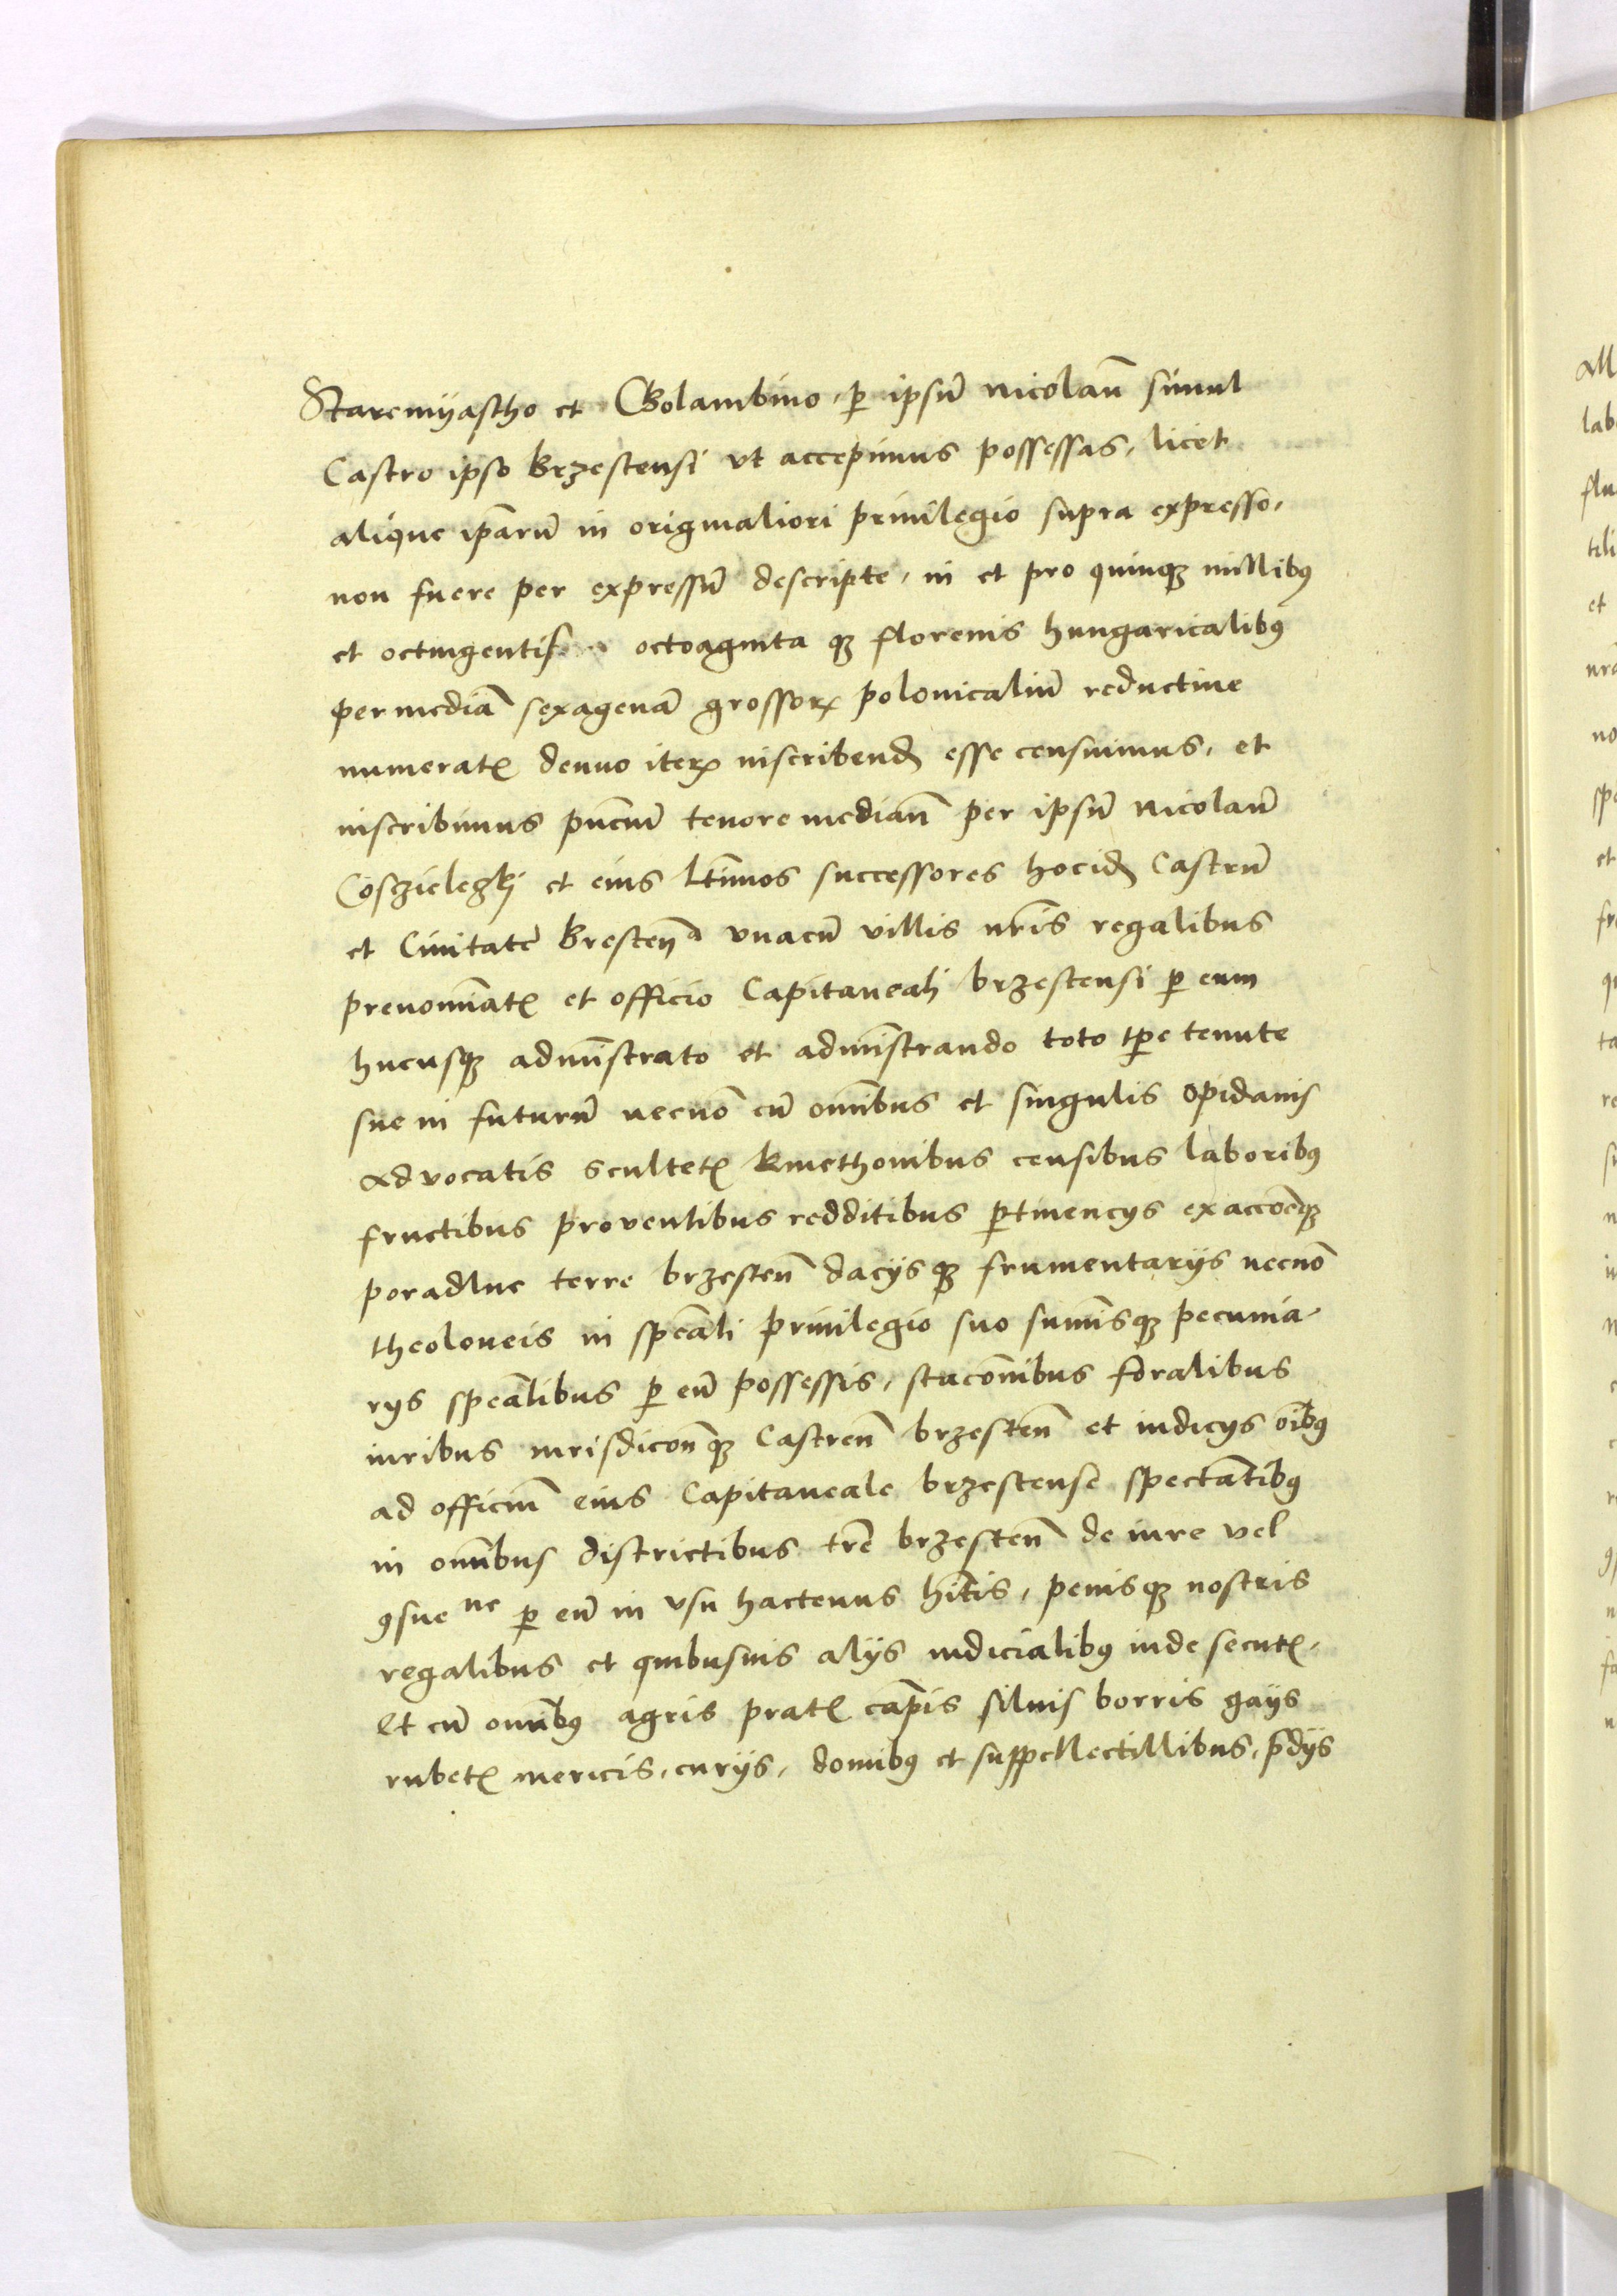 Staremyastho et Golambino, p ipsū Nicolaū simul
Castro ipso Brzestensi vt accepimus possessas, licet
aliqve ipārū in originaliori priuilegio supra expresso,
non fuere per expressū descripte, in et pro quinqꝫ millibꝰ
et octingentis octoaginta qꝫ florenis hungaricalibꝰ
per mediā sexagenā grossorꝝ polonicaliū reductiue
numeratꝭ denuo iterꝝ inscribendꝭ esse censuimus, et
inscribimus pn̄cium tenore median̄ per ipsū Nicolaū
Cosczielezkj et eius ltīmos successores hocidꝫ Castrū
et Ciuitatē Brestenꝭ vnacū villis nr̄is regalibus
prenomīatꝭ et officio Capitaneali brzestensi p eum
hucusqꝫ admīstrato et admīstrando toto tp̄e tenute
sue in futurū necnō cū om̄ibus et singulis opidanis
Advocatis scultetꝭ kmethonibus censibus laboribꝰ
fructibus proventibus redditibus ptinencys exaccōeqꝫ
poradlne terre brzesten̄ dacijs qꝫ frumentarijs necnō
theoloneis in spēali priuilegio suo sum̄isqꝫ pecunia-
rys spēalibus p eū possessis, stacōnibus foralibus
iuribus iurisdicōnqꝫ Castren̄ brzesten̄ et iudicys oībꝰ
ad officiū eius Capitaneale brzestense spectātibꝰ
in om̄ibus districtibus tr̄e brzesten̄ de iure vel
ꝯsue ne p eū in vsu hactenus hītis, penisqꝫ nostris
regalibus et quibusuis alijs iudicialibꝰ inde secutꝭ,
Et cū om̄ibꝰ agris pratꝭ cāpis siluis borris gays
rubetꝭ mericis, curijs, domibꝰ et suppellectillibus, p̄dijs